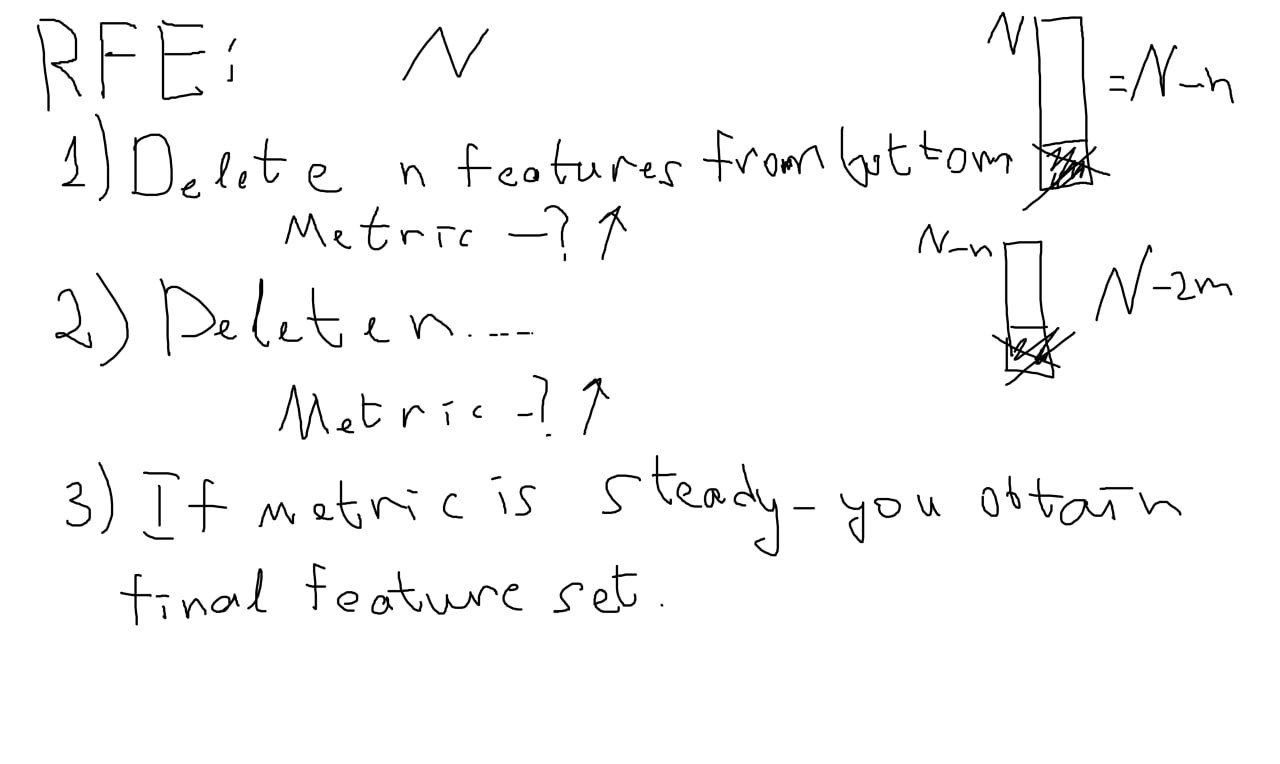 RFE: N
N = N-n
1) Delete n features from bottom
Metric -? ↑
N-n N-2m
2) Delete n....
Metric -? ↑
3) If metric is steady - you obtain
final feature set.